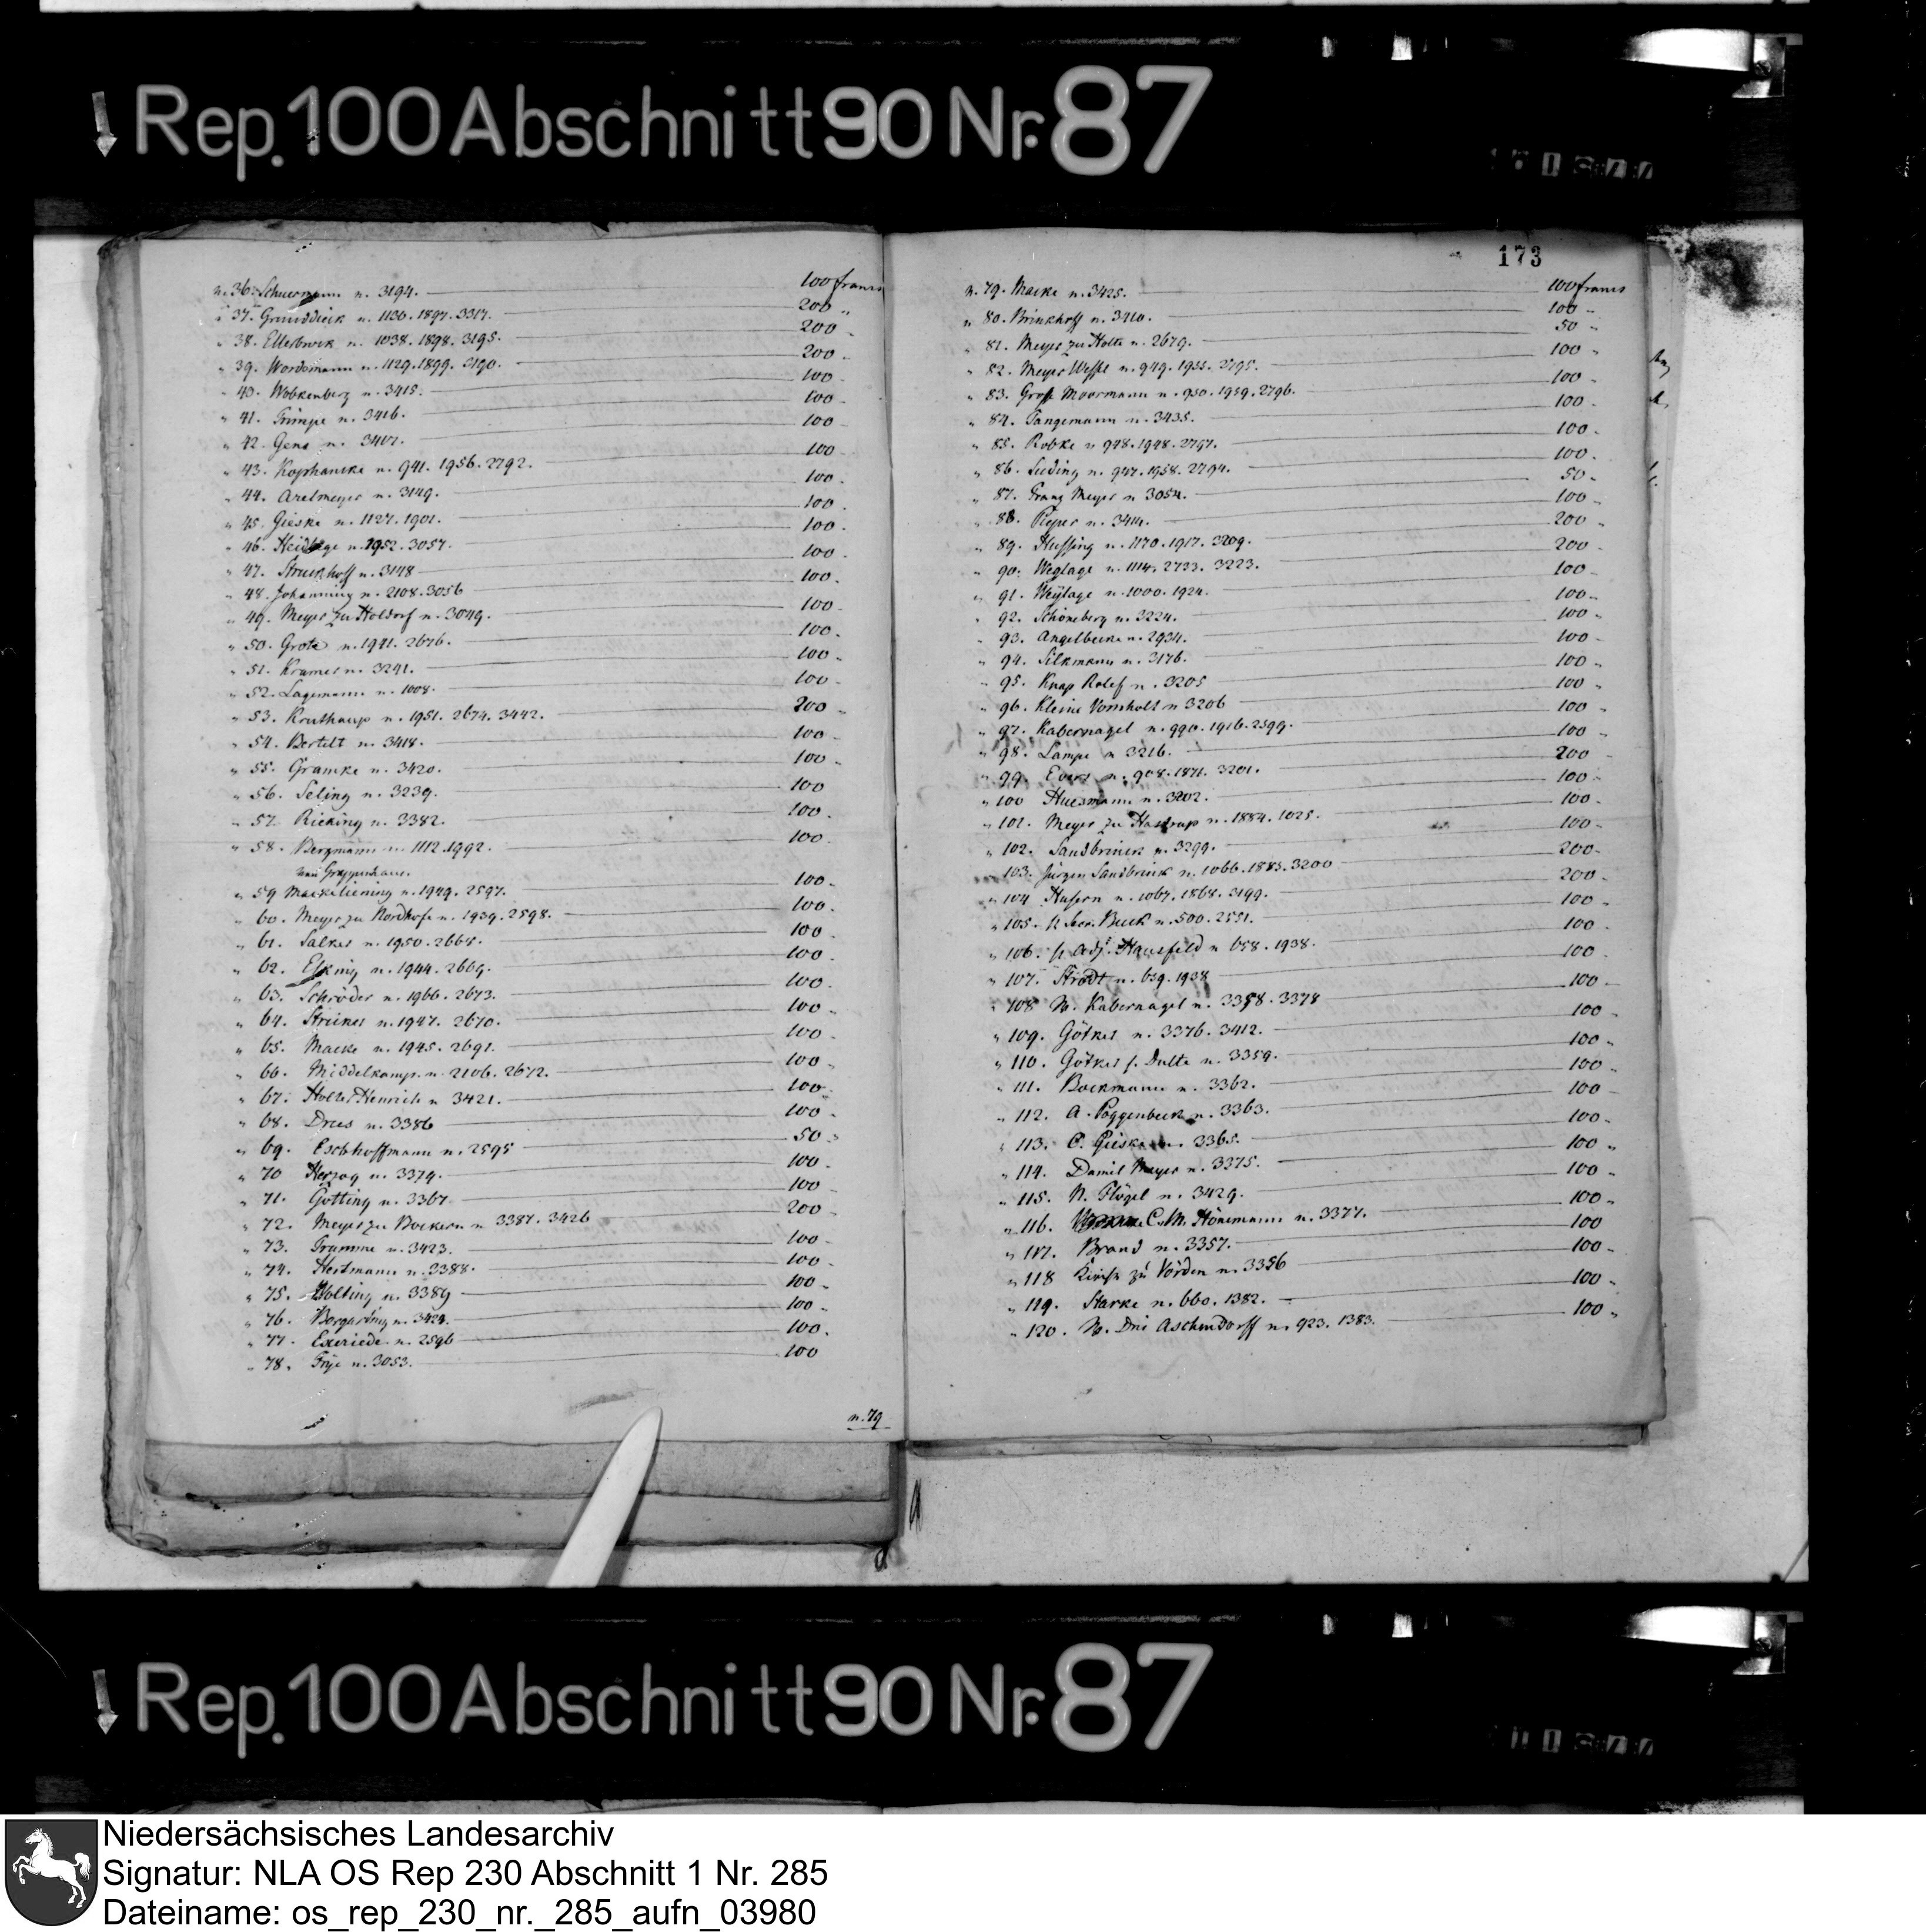 Rep. 100 Abschnitt 90 Nr. 87
n. 36. Schuermann n. 3194. 100 francs
" 37. Grunddieck n. 1130. 1897. 3317. 200 "
" 38. Ellerbrock n. 1038. 1898. 3195. 200 "
" 39. Wordemann n. 1129. 1899. 3190. 200 "
" 40. Wobkenberg n. 3415. 100 "
" 41. Trimpe n. 3416. 100 "
" 42. n. 100 "
" 43. Kophancke n. 941. 1956. 2792. 100 "
" 44. Arelmeyer n. 3149. 100 "
" 45. Gieske n. 1127. 1901. 100 "
" 46. n. 1952. 3057. 100 "
" 47. Struckhoff n. 3148 100 "
" 48. Johanning n. 2108. 3056 100 "
" 49. Meyer zu Holdorf n. 3049. 100 "
" 50. Grote n. 1941. 2676. 100 "
" 51. Kramer n. 3241. 100 "
" 52. Lagemann n. 1008. 100 "
" 53. Kruthaup n. 1951. 2674. 3442. 200 "
" 54. Bertelt n. 3418. 100 "
" 55. Gramke n. 3420. 100 "
" 56. Seling n. 3239. 100
" 57. Rieking n. 3382. 100 "
" 58. Bergmann n. 1112. 1992. 100 "
" 59 n. 1949. 2597. 100 "
" 60. Meyer zu Nordhofe n. 1939. 2598. 100 "
" 61. Salker n. 1950. 2668. 100 "
" 62. Esking n. 1944. 2669. 100 "
" 63. Schröder n. 1966. 2673. 100 "
" 64. Strieker n. 1947. 2670. 100 "
" 65. Macke n. 1945. 2691. 100 "
" 66. Middelkamp n. 2106. 2672. 100 "
" 67. Henrich n. 3421. 100 "
" 68. Drees n. 3386 100 "
" 69. Eschhoffmann n. 2595 50 "
" 70 Herzog n. 3379. 100 "
" 71. Götting n. 3367 100 "
" 72. Meyer zu Bockern n. 3387. 3426 200 "
" 73. Grumme n. 3423. 100 "
" 74. Hertmann n. 3388. 100 "
" 75. Wolting n. 3389 100 "
" 76. n. 3424. 100 "
" 77. Exeriede n. 2596 100 "
" 78. Frye n. 3053. 100
n. 79
173
n. 79. Macke n. 3425. 100 francs
" 80. Brinkhoff n. 3410. 100 "
" 81. Meyer zu Holte n. 2679. 50 "
" 82. Meyer Wessel n. 949. 2795. 100 "
" 83. Grosse Moormann n. 950. 1959. 2796. 100 "
" 84. Tangemann n. 3435. 100 "
" 85. Robke n. 948. 1948. 2797. 100 "
" 86. Suding n. 947. 1958. 2794. 100 "
" 87. Franz Meyer n. 3054. 50 "
" 88. Pieper n. 3414. 100 "
" 89. Hussing n. 1170. 1917. 3209. 200 "
" 90. Weglage n. 2733. 3223. 200 "
" 91. Weglage n. 1000. 1924. 100 "
" 92. Schöneberg n. 3224. 100 "
" 93. Angelbecke n. 2934. 100 "
" 94. Silkmann n. 3176. 100 "
" 95. Knap Rolef n. 3205 100 "
" 96. Kleine Vornholt n 3206 100 "
" 97. Kabernagel n. 990. 1916. 2599. 100 "
" 98. Lampe n 3216. 100 "
" 99. Evers n. 908. 1871. 3201. 200 "
" 100 Huesmann n. 3202. 100 "
" 101. Meyer zu Hastrup n. 1884. 1025. 100 "
" 102. Sandbrinck n. 3299. 100 "
" 103. Jürgen Sandbrink n. 1066. 1885. 3200 200 "
" 104 n. 1067. 1868. 3199. 200 "
" 105. Buck n. 500. 2551. 100 "
" 106. Adj. Hausfeld n 658. 1938. 100 "
" 107. Strodt n. 659. 1938 100 "
" 108 W. Kabernagel n. 3358. 3378 100 "
" 109. Götker n. 3376. 3412. 100 "
" 110. Götker n. 3359. 100 "
" 111. Bockmann n. 3362. 100 "
" 112. A. Poggenbeck n. 3363. 100 "
" 113. C. Gieske n. 3365. 100 "
" 114. Daniel Meyer n. 3375. 100 "
" 115. N. Flögel n. 3429. 100 "
" 116. C. M. Hönemann n. 3377. 100 "
" 117. Brand n. 3357. 100
" 118 zu Vörden n. 3356 100 "
" 119. Starke n. 660. 1382. 100 "
" 120. W. Dni Aschendorff n. 923. 1383. 100 "
Rep. 100 Abschnitt 90 Nr. 87
Niedersächsisches Landesarchiv
Signatur: NLA OS Rep 230 Abschnitt 1 Nr. 285
Dateiname: os_rep_230_nr._285_aufn_03980